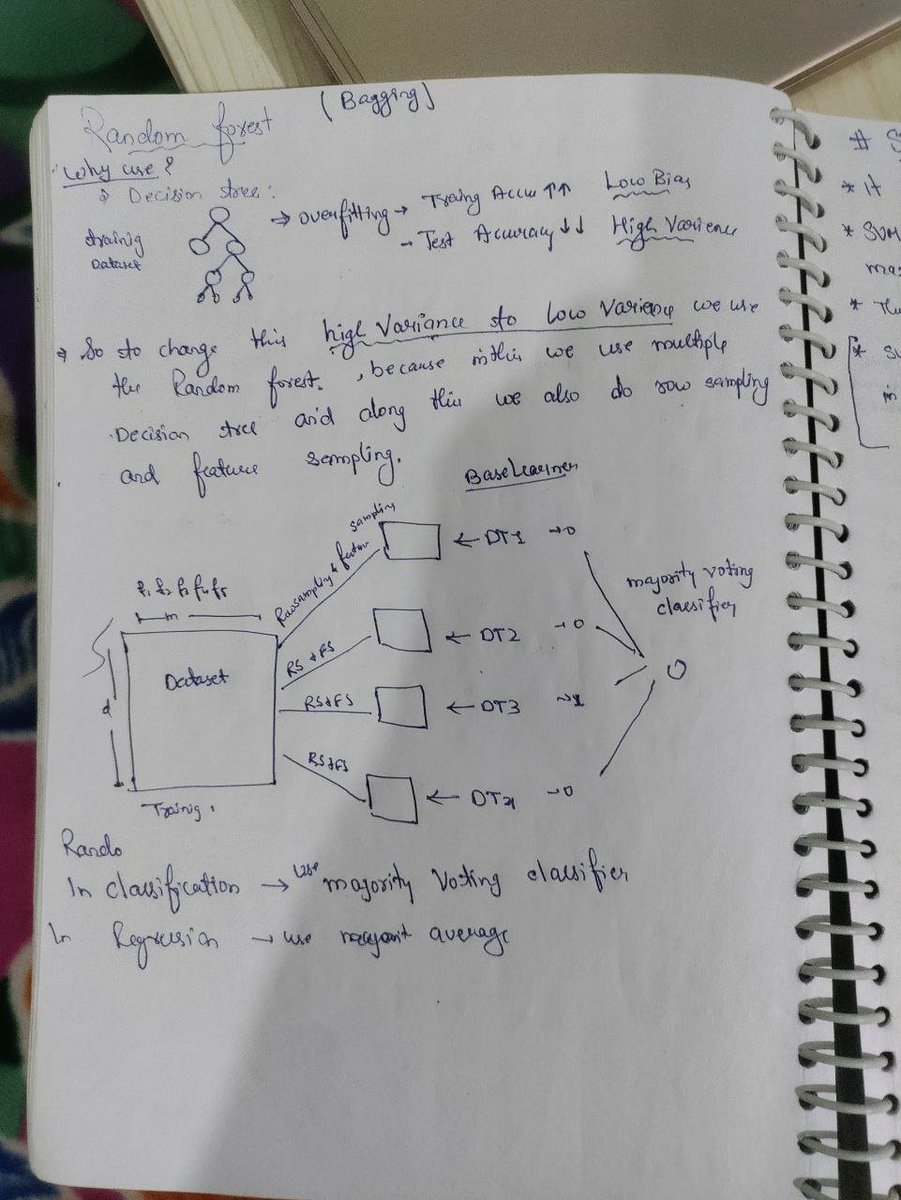 Random forest (Bagging)
Why use?
Decision tree:
training
Dataset
⇒ overfitting → Traing Accu ↑↑ Low Bias
→ Test Accuracy ↓↓ High Varience
So to change this high Variance to Low Varience we use
the Random forest. , because in this we use multiple
Decision tree and along this we also do row sampling
and feature sampling.
BaseLearner
Rowsampling & feature sampling
← DT1 → 0
f1 f2 f3 f4 f5
m
majority voting
classifier
RS + FS
← DT2 → 0
Dataset
0
d
RS+FS
← DT3 → 1
RS+FS
← DT4 → 0
Trainig
Rando
In classification → use majority Voting classifier
In Regression → use average